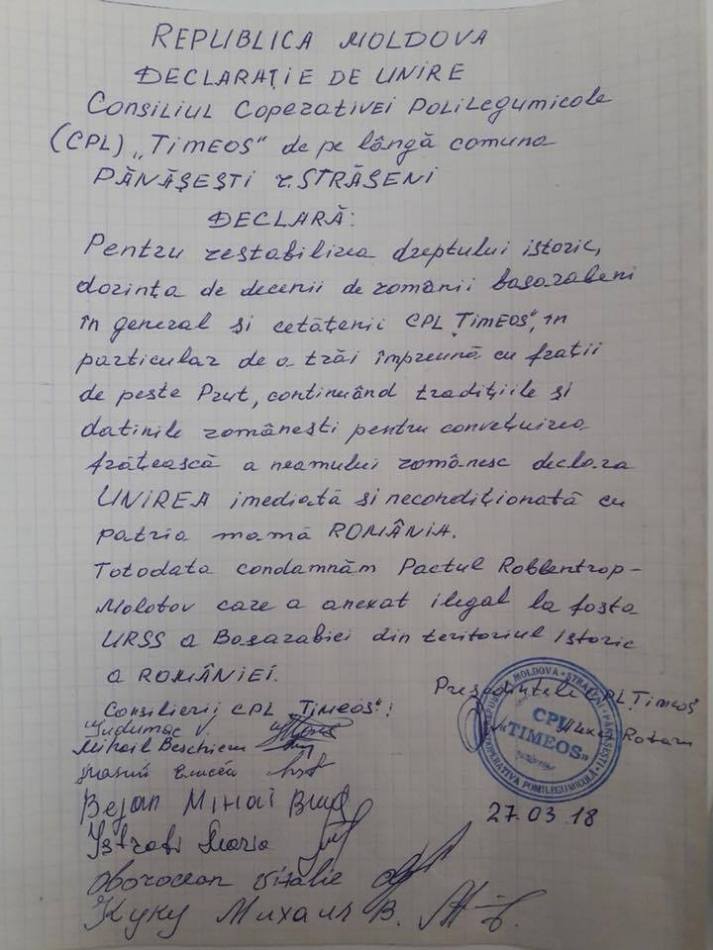 REPUBLICA MOLDOVA
DECLARAȚIE DE UNIRE
Consiliul Coperativei Polilegumicole
(CPL) „Timeos" de pe lângă comuna
PĂNĂȘEȘTI r. STRĂȘENI
DECLARĂ:
Pentru restabilirea dreptului istoric,
dorința de decenii de românii basarabeni
în general si cetățenii CPL „Timeos", în
particular de a trăi împreună cu frații
de peste Prut, continuând tradițiile si
datinile românesti pentru convețuirea
frățească a neamului românesc declara
UNIREA imediată si necondiționată cu
patria mamă ROMÂNIA.
Totodata condamnăm Pactul Robbentrop-
Molotov care a anexat ilegal la fosta
URSS a Basarabiei din teritoriul Istoric
a ROMÂNIEI.
Președintele CPL Timeos
Consilierii CPL „Timeos"!
CPL
"TIMEOS"
COOPERATIVA POMILEGUMICOLĂ
Mihail
Bejan Mihai
Istrati Maria
27.03.18
Vitalie
Куку Михаил В.